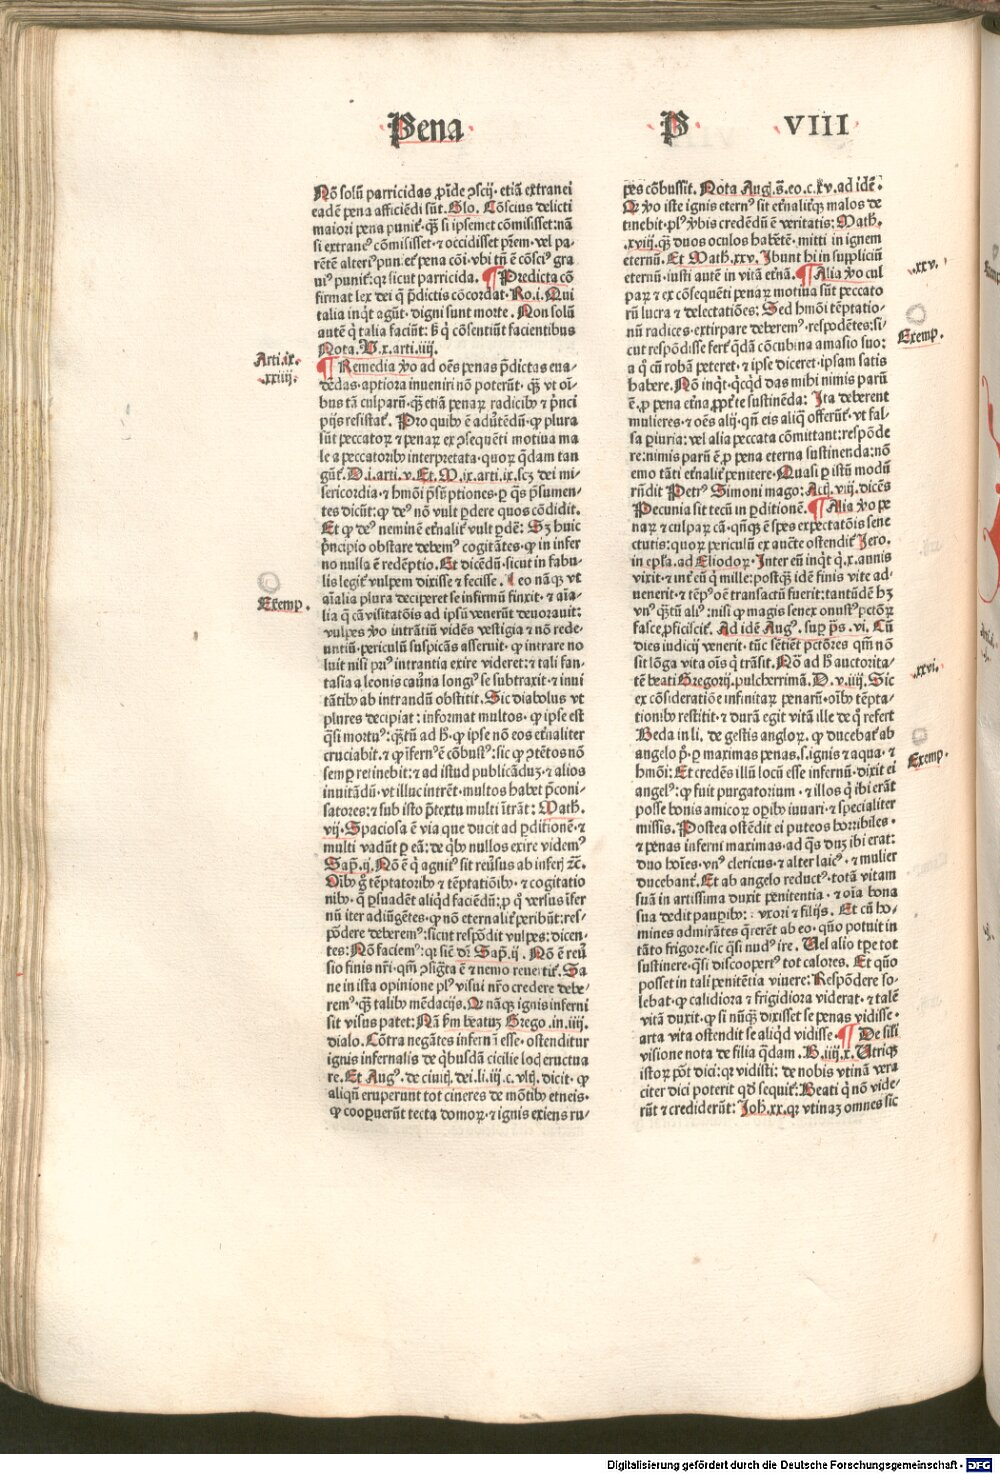 Pena P VIII
Nō solū parricidas ꝓĩde ꝯscij· etiā extranei
eadē pena afficiēdi sūt. Glo. Cōscius delicti
maiori pena puniť· qꝫ si ipsemet cōmisisset: nā
si extraneꝰ cōmisisset· ⁊ occidisset pr̃em· vel pa-
nꝰ puniť: qꝛ sicut parricida. ¶ Predicta cō
firmat lex dei q̃ p̃dictis cōcordat· Ro.i. Qui
talia inq̃t agūt· digni sunt morte. Non solū
autē q̇ talia faciūt: ƀ q̇ cōsentiūt facientibus
Nota. P.x.arti.iiij.
Arti.ix.
xxiiij.
¶ Remedia ꝟo ad oēs penas p̃dictas eua-
dēdas· aptiora inueniri nō poterūt· qꝫ vt oĩ-
bus tā culparū· qꝫ etiā penaꝝ radicibꝰ ⁊ p̃nci
pijs resistať. Pro quibꝰ ē aduertēdū· ꝙ plura
sūt peccatoꝝ ⁊ penaꝝ ex ꝯsequēti motiua ma
le a peccatoribꝰ interpretata· quoꝝ q̃dam tan
gūť. D.i.arti.v. Et. M.ix.arti.ix.scꝫ dei mi-
sericordia· ⁊ hmōi p̃sūptiones· ꝑ q̃s p̃sumen-
tes dicūt: ꝙ deꝰ nō vult ꝑdere quos cōdidit.
Et ꝙ deꝰ neminē eťnaliť vult ꝑdē: Sꝫ huic
p̃ncipio obstare debemꝰ cogitātes· ꝙ in infer
no nulla ē redēptio. Et dicēdū· sicut in fabu-
lis legiť vulpem dixisse ⁊ fecisse. Leo nāqꝫ vt
Exemp.
aĩalia plura deciperet se infirmū finxit· ⁊ aĩa-
lia q̃ cā visitatōis ad ipsū venerūt deuorauit:
vulpes ꝟo intrātiū vidēs vestigia ⁊ nō rede-
untiū· periculū suspicās asseruit· ꝙ intrare no
luit nisi priꝰ intrantia exire videret: ⁊ tali fan-
tasia a leonis cauerna longiꝰ se subtraxit· ⁊ inui
tātibꝰ ab intrandū obstitit. Sic diabolus vt
plures decipiat: informat multos· ꝙ ipse est
q̃si mortuꝰ: qꝫtū ad h̃· ꝙ ipse nō eos eťnaliter
cruciabit· ⁊ ꝙ ĩfernꝰ ē cōbustꝰ: sic ꝙ ꝯtētos nō
semꝑ retinebit: ⁊ ad istud publicādū· ⁊ alios
inuitādū· vt illuc intrēt· multos habet p̃coni-
satores: ⁊ sub isto p̃textu multi ĩtrāt: Math.
vij. Spaciosa ē via que ducit ad ꝑditionē· ⁊
multi vadūt ꝑ eā: de q̇bꝰ nullos exire videmꝰ
Sap.ij. Nō ē q̇ agnitꝰ sit reūsus ab inferis ⁊c̃.
Oĩbꝰ g̊ tēptatoribꝰ ⁊ tēptatiōibꝰ· ⁊ cogitatio
nibꝰ· q̃ ꝑsuadēt aliq̇d faciēdū: ꝑ q̇ versus ĩfer
nū iter adiūgētes· ꝙ nō eternaliť peribūt: res-
pōdere deberemꝰ: sicut respōdit vulpes: dicen-
tes: Nō faciemꝰ: qꝛ sic̃ dr̃ Sap.ij. Nō ē reū
sio finis nr̃i· qm̃ ꝯsig̃ta ē ⁊ nemo reuertiť. Sa
ne in ista opinione plꝰ visui nr̃o credere debe-
remꝰ· qꝫ talibꝰ mēdacijs. Qꝛ nāqꝫ ignis inferni
sit visus patet: Nā ẜm beatuꝫ Grego.in.iiij.
dialo. Cōtra negātes infernū esse· ostenditur
ignis infernalis de q̇busdā cicilie locis eructua
re. Et Augꝰ.de ciuitate dei.li.iij.c.vlti. dicit· ꝙ
aliqn̄ eruperunt tot cineres de mōtibꝰ etneis·
ꝙ cooꝑuerūt tecta domoꝝ· ⁊ ignis exiens ru-
pes cōbussit. Nota Aug.s̃.eo.c.xv.ad idē.
Qꝛ ꝟo iste ignis eternꝰ sit eťnaliťqꝫ malos de
tinebit· plꝰ ꝟbis credēdū ē veritatis: Math.
.xviij.qꝫ duos oculos habētē· mitti in ignem
eternū. Et Math.xxv. Ibunt hi in suppliciū
eternū· iusti autē in vitā eťnā. ¶ Alia ꝟo cul
.xxv.
paꝝ ⁊ ex cōsequēti penaꝝ motiua sūt peccato
rū lucra ⁊ delectatiōes: Sed hmōi tēptatio-
nū radices· extirpare deberemꝰ· respodētes: si-
Exemp.
cut respōdisse ferť q̃dā cōcubina amasio suo:
a q̇ cū robā peteret· ⁊ ipse diceret· ipsam satis
habere. Nō inq̃t· q̇cq̇d das mihi nimis parū
ē· ꝓ pena eťna ꝓpter te sustinēda: Ita deberent
mulieres· ⁊ oēs alij· qn̄ eis aliq̇ offerūť· vt fal-
sa ꝑiuria: vel alia peccata cōmittant: respōde
re: nimis parū ē· ꝓ pena eterna sustinenda: nō
emo tāti eťnaliť penitere. Quasi ꝑ istū modū
rñdit Petrꝰ Simoni mago: Actꝭ.viij.dicēs
Pecunia sit tecū in ꝑditionē. ¶ Alia ꝟo pe
naꝝ ⁊ culpaꝝ cā· qn̄qꝫ ē spes expectatōis sene
ctutis: quoꝝ periculū ex aucte ostendiť Jero.
in epl̃a.ad Eliodoꝝ. Inter eū inq̃t q̇.x.annis
vixit· ⁊ inť eū q̇ mille: postqꝫ idē finis vite ad-
uenerit· ⁊ tēpꝰ oē transactū fuerit: tantūdē hꝫ
vnꝰ qꝫtū aliꝰ: nisi ꝙ magis senex onustꝰ pctōꝝ
fasce· ꝓficisciť. Ad idē Augꝰ. suꝑ ps̃.vi. Cū
dies iudicij venerit· tūc sētiēt pctōres qm̃ nō
sit lōga vita oĩs q̃ trāsit. Nō ad h̃ auctorita-
tē beati Gregorij.pulcherrimā. D.v.iiij. Sic
.xxvi.
ex cōsideratiōe infinitaꝝ penarū· oĩbꝰ tēpta-
tionibꝰ restitit· ⁊ durā egit vitā ille de q̇ refert
Beda in li. de gestis angloꝝ· ꝙ ducebať ab
Exemp.
angelo p̃· ꝑ maximas penas.s.ignis ⁊ aqua· ⁊
hmōi: Et credēs illū locū esse infernū· dixit ei
angelꝰ: ꝙ fuit purgatorium· ⁊ illos q̇ ibi erāt
posse bonis amicoꝝ oꝑibꝰ iuuari· ⁊ specialiter
missis. Postea ostēdit ei puteos horribiles·
⁊ penas inferni maximas· ad q̃s duꝫ ibi erat:
duo hoĩes· vnꝰ clericus· ⁊ alter laicꝰ· ⁊ mulier
ducebanť. Et ab angelo reductꝰ· totā vitam
suā in artissima duxit penitentia· ⁊ oĩa bona
sua dedit pauꝑibꝰ: vxori ⁊ filijs. Et cū ho-
mines admirātes q̃rerēt ab eo· quō potuit in
tāto frigore· sic q̃si nudꝰ ire. Uel alio tꝑe tot
sustinere· q̃si discoopertꝰ tot calores. Et quō
posset in tali penitētia viuere: Respōdere so-
lebat· ꝙ calidiora ⁊ frigidiora viderat· ⁊ talē
vitā duxit· ꝙ si nūqꝫ dixisset se penas vidisse·
arta vita ostendit se aliq̇d vidisse. ¶ De sili
visione nota de filia q̃dam. B.iiij.x. Utriqꝫ
istoꝝ pōt dici: qꝛ vidisti: de nobis vtinā vera
citer dici poterit qd̃ sequiť: Beati q̇ nō vide-
rūt ⁊ crediderūt: Joh̃.xx.qꝛ vtinaꝫ omnes sic
Digitalisierung gefördert durch die Deutsche Forschungsgemeinschaft - DFG